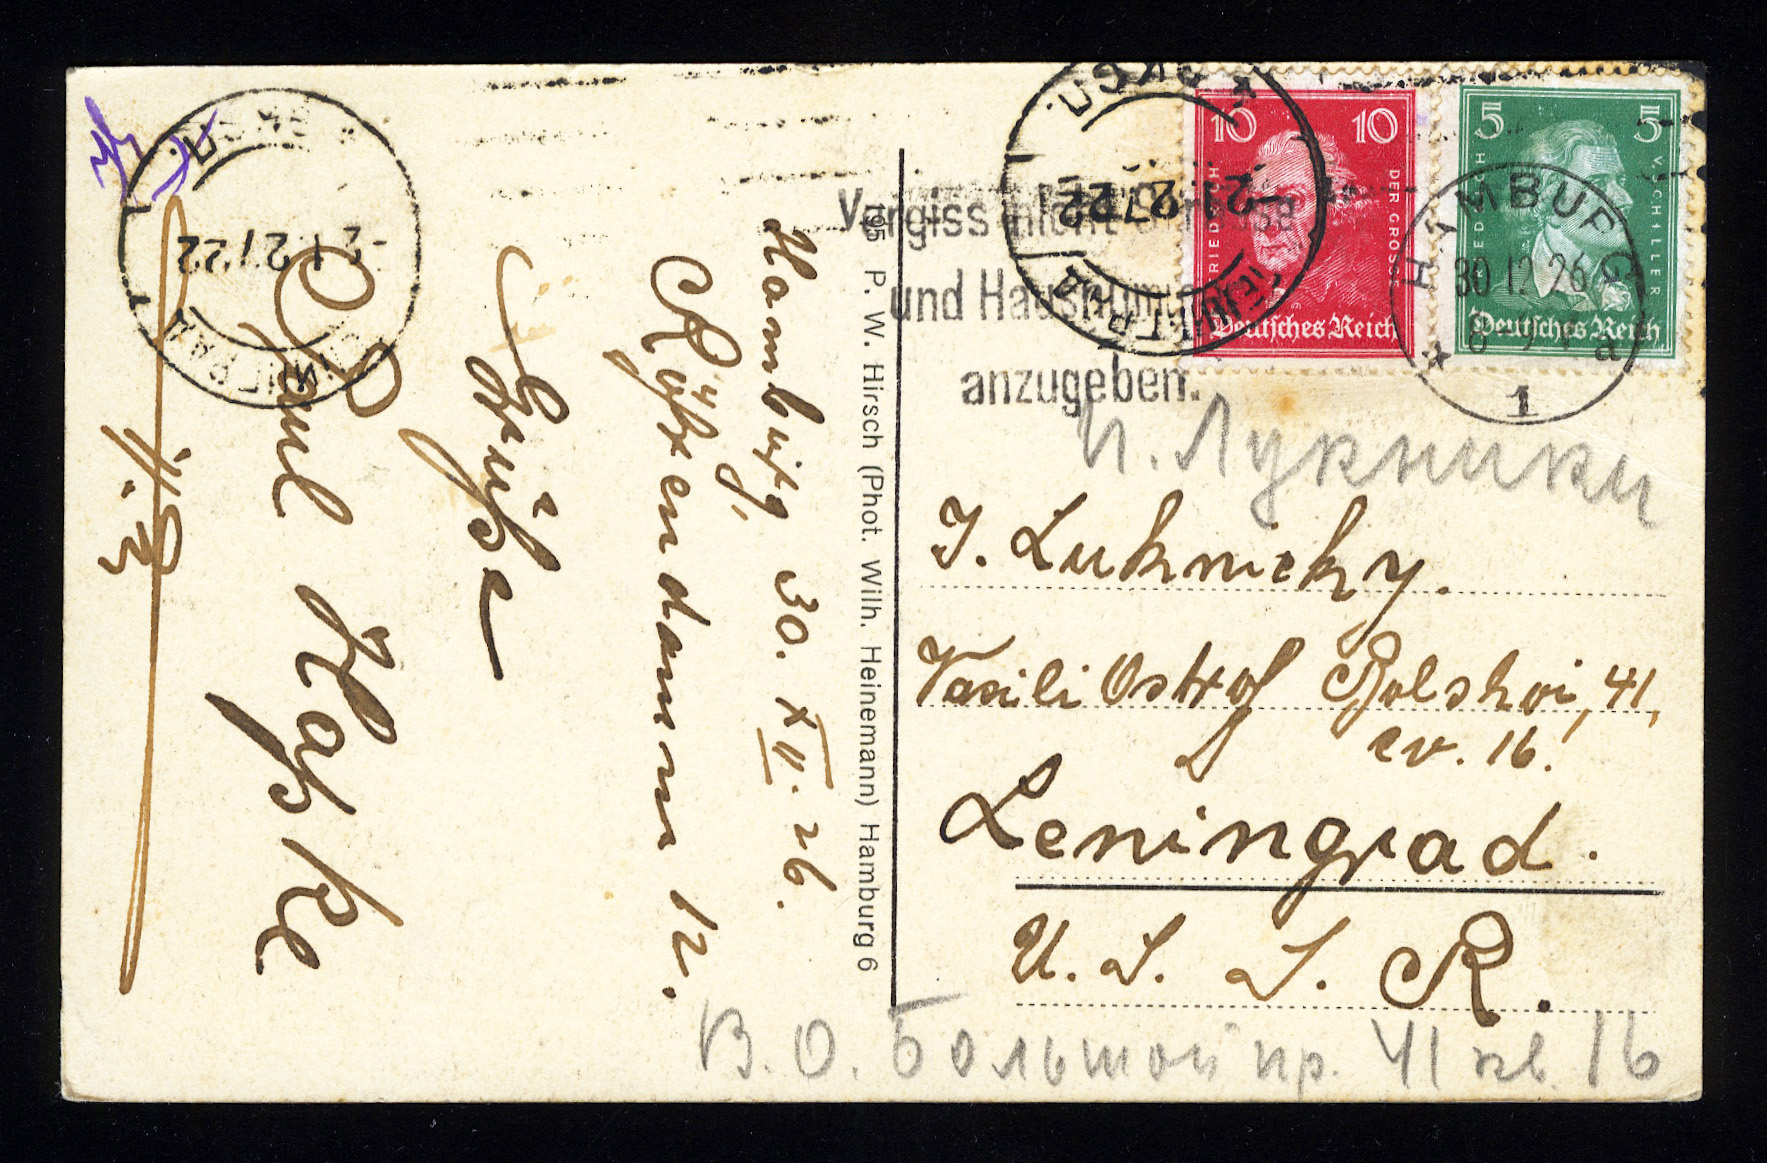 Hamburg, 30. XII. 26.
Röhrendamm 12.
Grüße
Paul Haßke
195 P. W. Hirsch (Phot. Wilh. Heinemann) Hamburg 6
10 10
DER GROSSE
Deutsches Reich
5 5
FRIEDRICH V SCHILLER
Deutsches Reich
HAMBURG
30.12.26
1
Vergiss nicht Strasse
und Hausnummer
anzugeben.
-2 1 27 22
ЛЕНИНГРАД
-2 1 27 22
И. Лукницки
I. Luknicky.
Vasili Ostrof Bolshoi, 41,
cv. 16.
Leningrad.
U. S. S. R.
В. О. Большой пр. 41 кв. 16